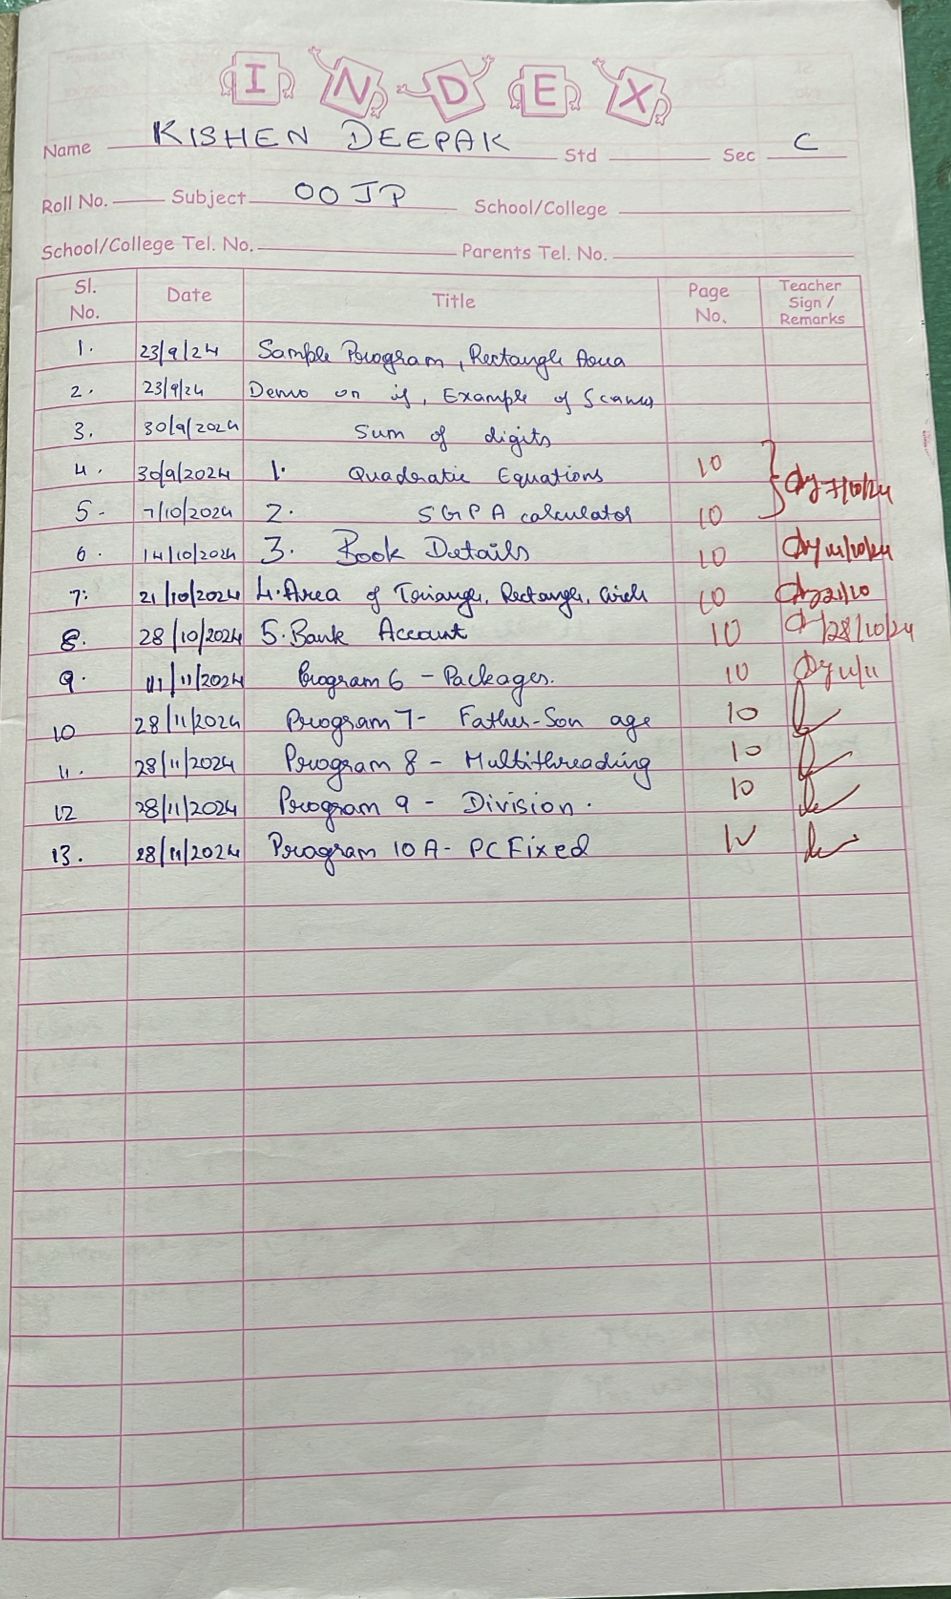 INDEX
Name KISHEN DEEPAK Std Sec C
Roll No. Subject OOJP School/College
School/College Tel. No. Parents Tel. No.
Sl. No. Date Title Page No. Teacher Sign / Remarks
1. 23/9/24 Sample Program, Rectangle Area
2. 23/9/24 Demo on if, Example of
3. 30/9/2024 Sum of digits
4. 30/9/2024 1. Quadratic Equations 10
5. 7/10/2024 2. SGPA calculator 10 7/10/24
6. 14/10/2024 3. Book Details 10 14/10/24
7. 21/10/2024 4. Area of Triangle, Rectangle, Circle 10 21/10
8. 28/10/2024 5. Bank Account 10 28/10/24
9. 11/11/2024 Program 6 - Packages. 10 11/11
10 28/11/2024 Program 7- Father-Son age 10
11. 28/11/2024 Program 8 - Multithreading 10
12 28/11/2024 Program 9 - Division. 10
13. 28/11/2024 Program 10A- PCFixed 10